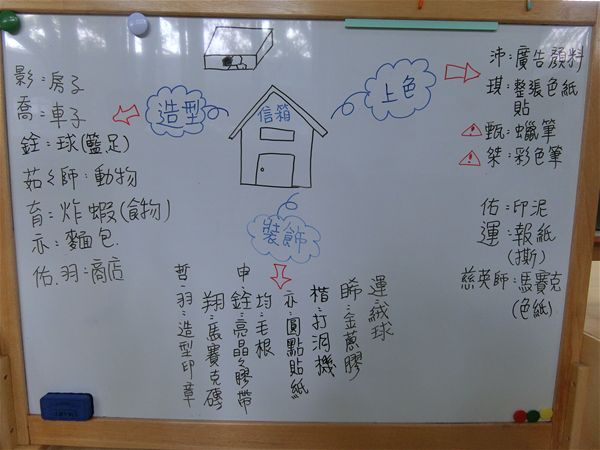 造型
影：房子
喬：車子
銓：球(籃足)
茹々師：動物
育：炸蝦(食物)
亦：麵包.
佑.羽：商店
信箱
上色
沛：廣告顏料
琪：整張色紙
貼
甄：蠟筆
桀：彩色筆
佑：印泥
運：報紙
(撕)
慈英師：馬賽克
(色紙)
裝飾
運：絨球
晞：金蔥膠
楷：打洞機
亦：圓點貼紙
均：毛根
申.銓：亮晶々膠帶
翔：馬賽克磚
哲.羽：造型印章